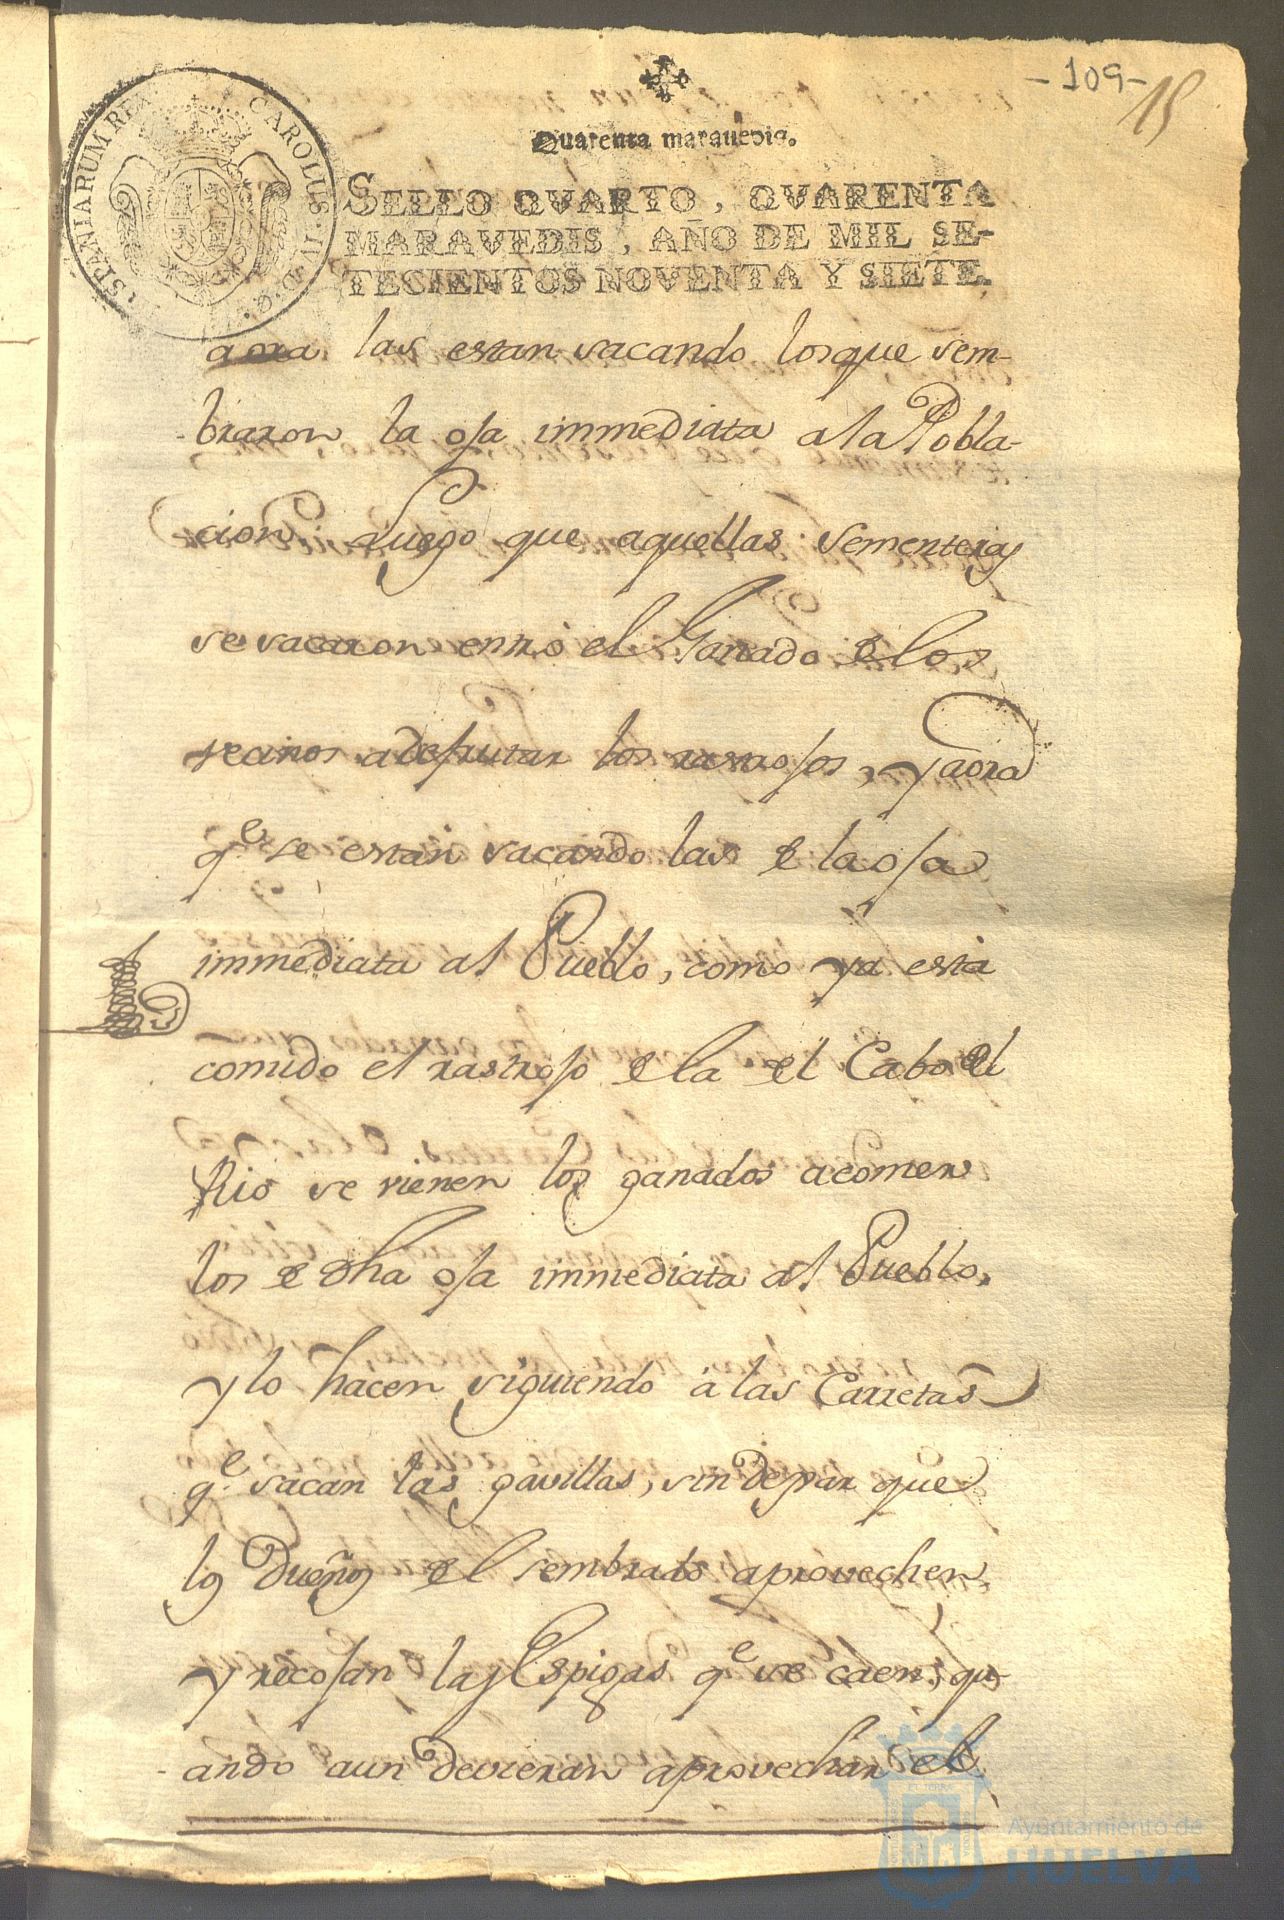 -109-
15
Quarenta maravedis.
CAROLUS·IV·D·G· HISPANIARUM REX
SELLO QVARTO, QVARENTA
MARAVEDIS, AÑO DE MIL SE-
TECIENTOS NOVENTA Y SIETE.
aora las estan sacando los que sem-
braron la oja immediata a la Pobla-
cion luego que aquellas sementeras
se sacaron entrò el Ganado de los
vecinos a desfrutar los rastrojos, y aora
qe. se estan sacando las de la oja
immediata al Pueblo, como ya està
comido el rastrojo de la del Cabo del
Rio se vienen los ganados a comer
los de dha oja immediata al Pueblo,
y lo hacen siguiendo à las Carretas
qe. sacan las gavillas, sin dexar que
los Dueños del sembrado aprovechen
y recojan las Espigas qe. se caen, qu-
ando aun devieran aprovechar el
Ayuntamiento de
HUELVA